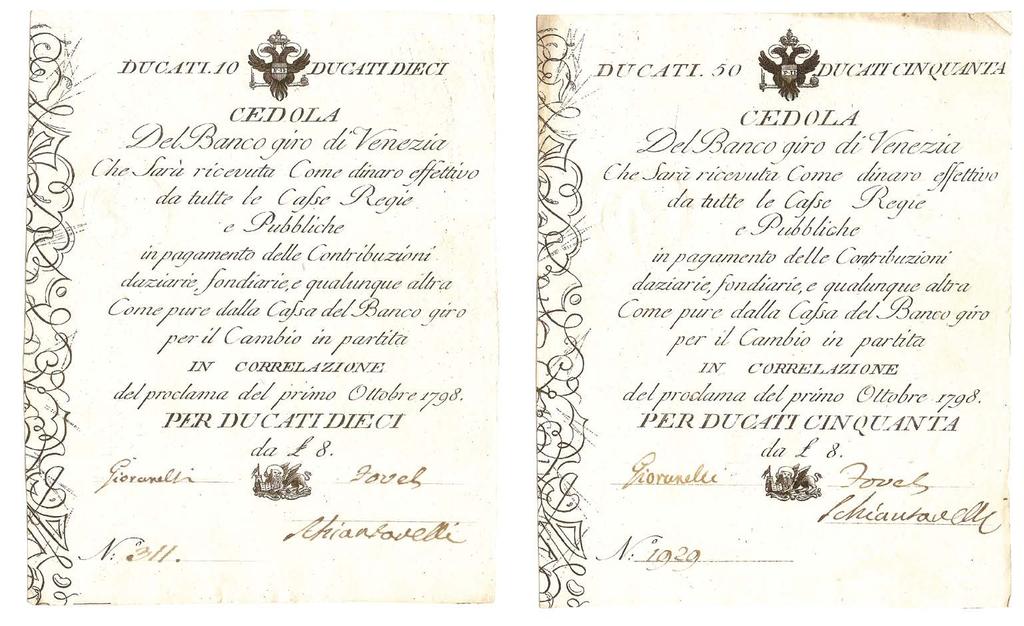 DUCATI.10 DUCATI DIECI
CEDOLA
Del Banco giro di Venezia
Che Sarà ricevuta Come dinaro effettivo
da tutte le Casse Regie
e Pubbliche
in pagamento delle Contribuzioni
daziarie, fondiarie, e qualunque altra
Come pure dalla Cassa del Banco giro
per il Cambio in partita
IN CORRELAZIONE
del proclama del primo Ottobre 1798.
PER DUCATI DIECI
da £ 8.
Giovanelli
Schiantavelli
N: 311.
DUCATI. 50 DUCATI CINQUANTA
CEDOLA
Del Banco giro di Venezia
Che Sarà ricevuta Come dinaro effettivo
da tutte le Casse Regie
e Pubbliche
in pagamento delle Contribuzioni
daziarie, fondiarie, e qualunque altra
Come pure dalla Cassa del Banco giro
per il Cambio in partita
IN CORRELAZIONE
del proclama del primo Ottobre 1798.
PER DUCATI CINQUANTA
da £ 8.
Giovanelli
Schiantavelli
N: 1929